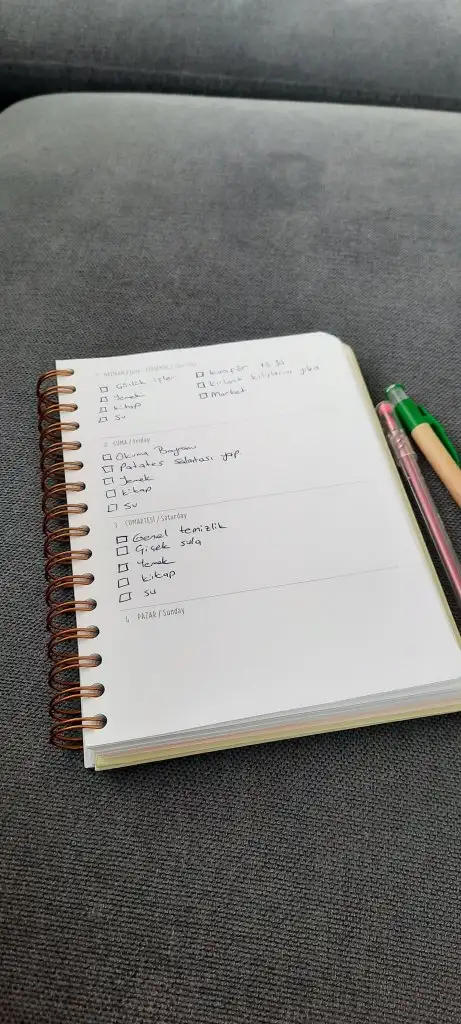 Günlük işler
Yemek
Kitap
Su
Kuaför
Kirlenen
Market
2 CUMA / Friday
Okuma Bayramı
Patates Salatası yap
Yemek
Kitap
Su
3 CUMARTESİ / Saturday
Genel temizlik
Çiçek sula
Yemek
Kitap
Su
4 PAZAR / Sunday